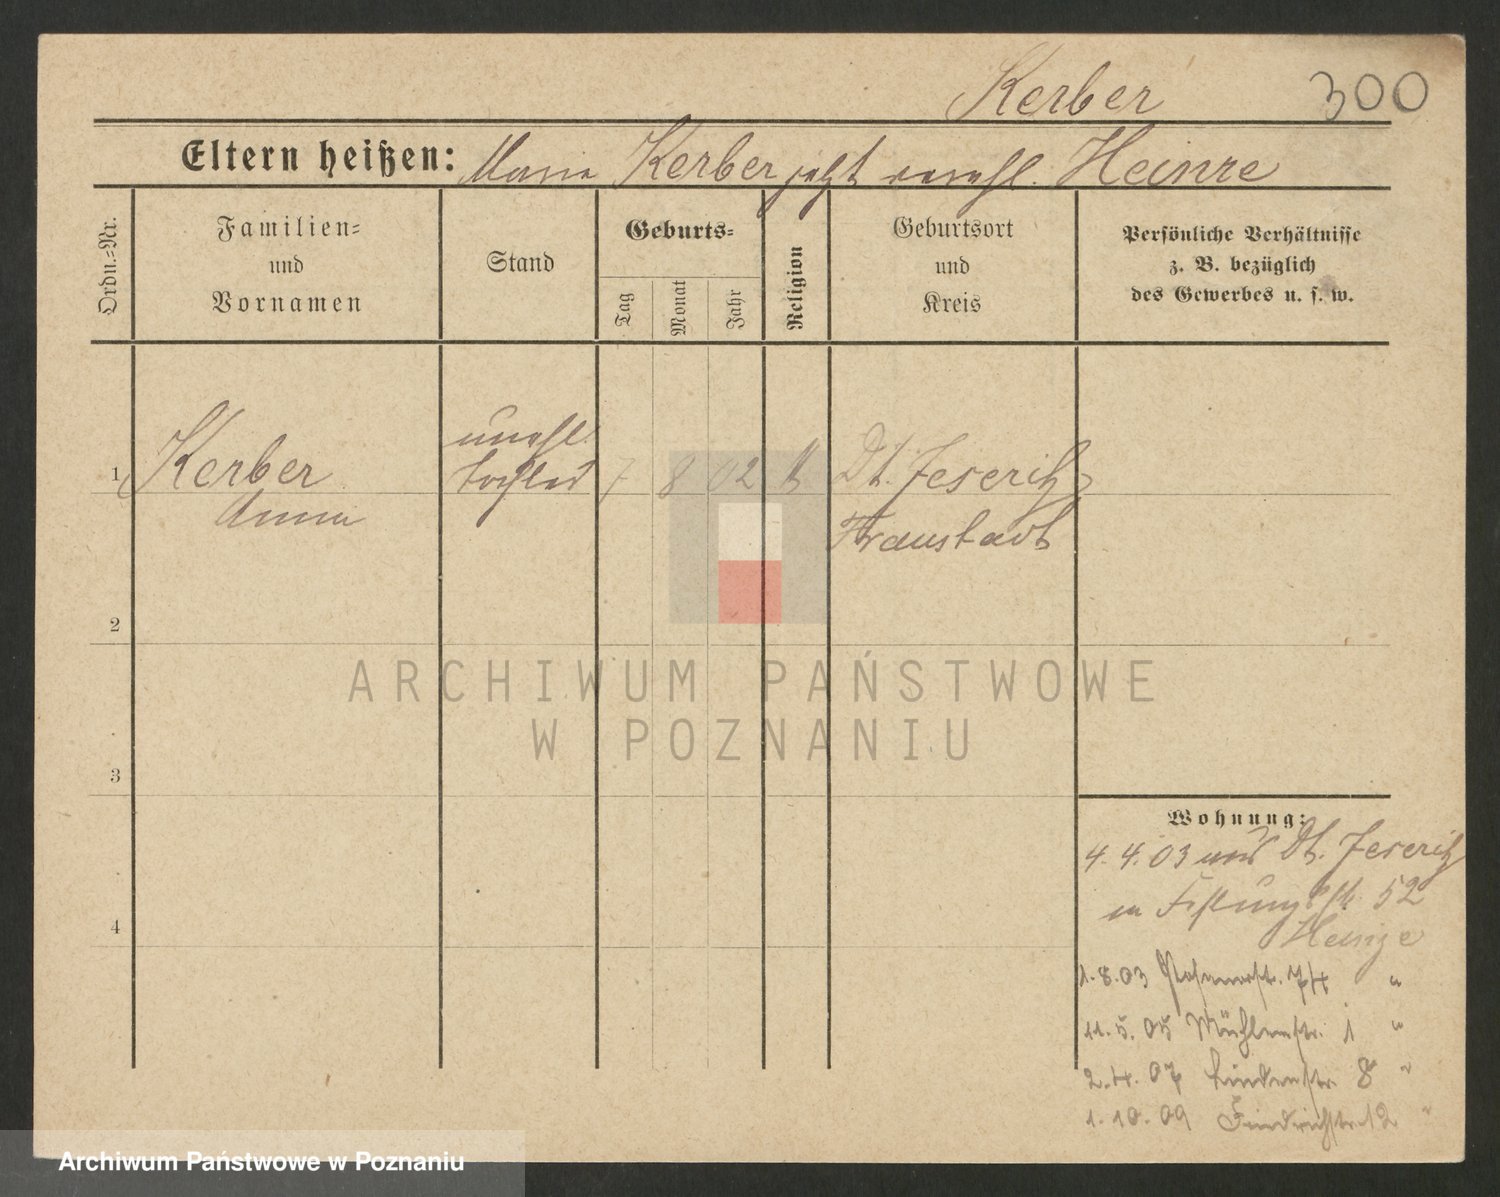 Kerber 300
Eltern heißen: Maria Kerber jetzt verehl. Heinze
Ordn.-Nr.
Familien-
und
Vornamen
Stand
Geburts-
Tag
Monat
Jahr
Religion
Geburtsort
und
Kreis
Persönliche Verhältnisse
z. B. bezüglich
des Gewerbes u. s. w.
unehl.
1 Kerber Tochter 7 8 02 k Dt. Jeseritz
Anna Fraustadt
2
3
4
ARCHIWUM PAŃSTWOWE
W POZNANIU
Wohnung:
4. 4. 03 aus Dt. Jeseritz
in Festungsstr. 52
Heinze
1. 8. 03 Posenerstr. 74 "
11. 5. 05 Mühlenstr. 1 "
2. 4. 07 Lindenstr. 8 "
1. 10. 09 Friedrichstr. 12 "
Archiwum Państwowe w Poznaniu